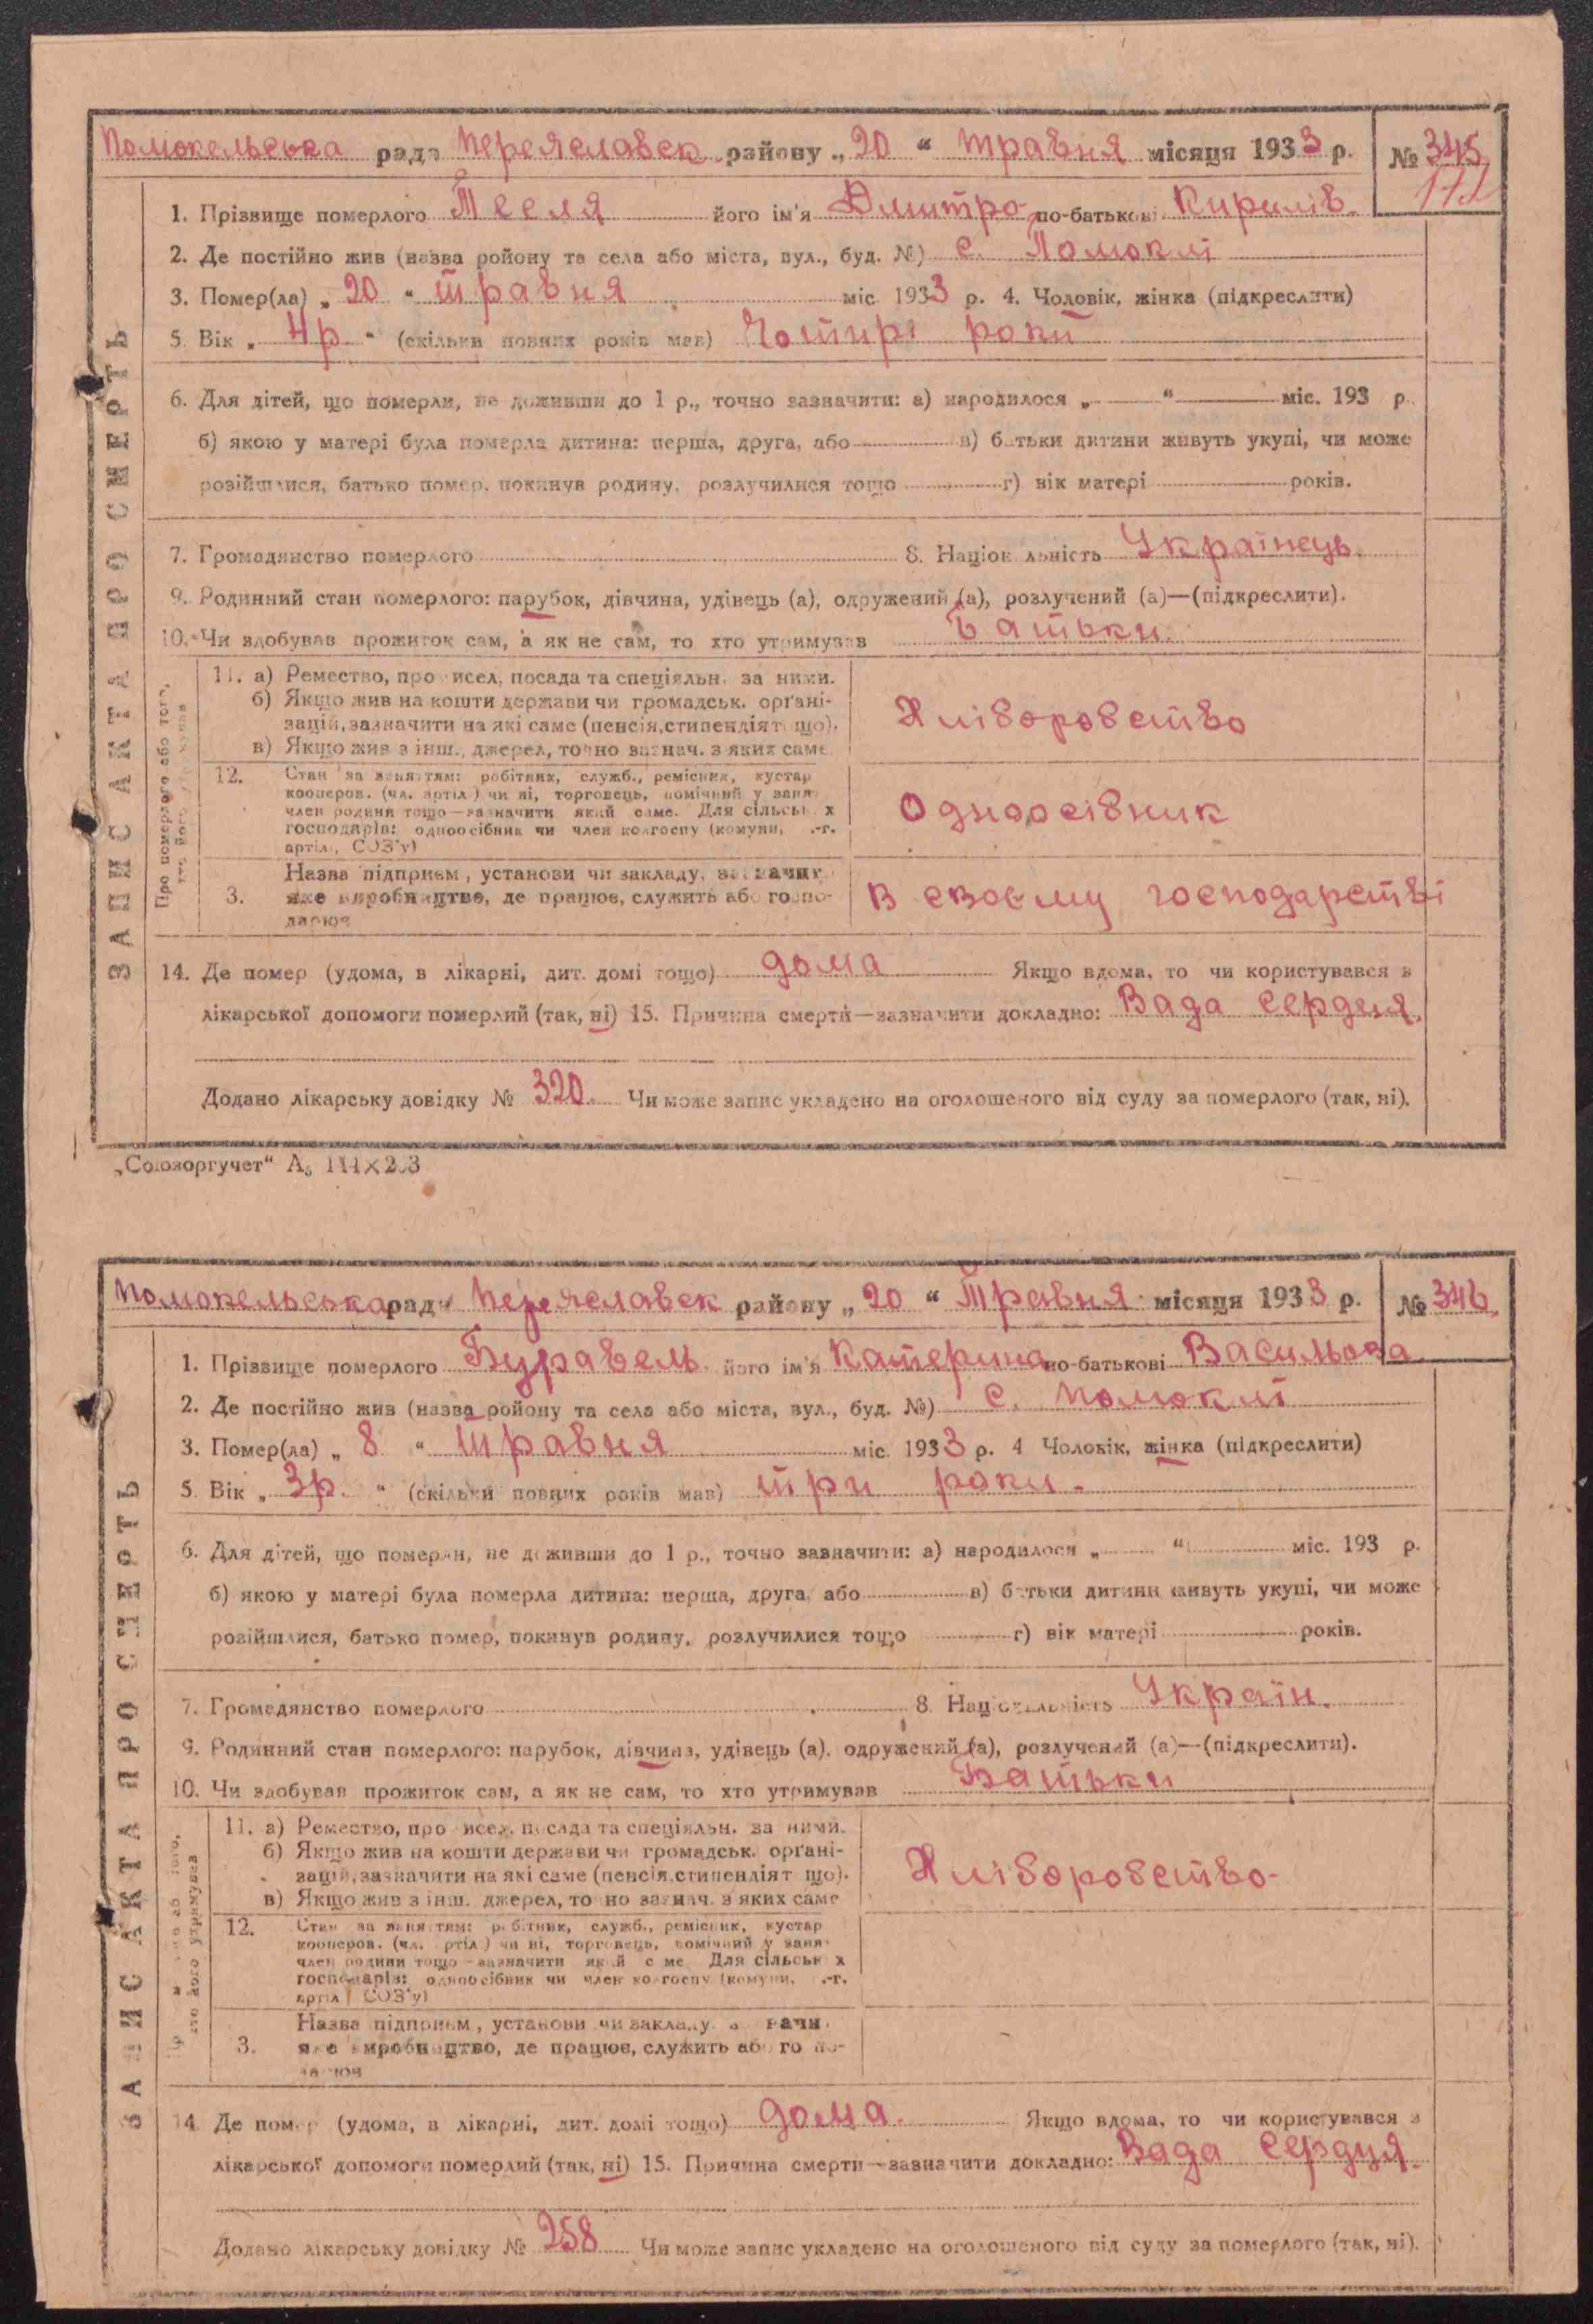 Помокельська рада Переяславск району „ 20 “ травня місяця 1933 р. № 345
171
1. Прізвище померлого Теселя його ім'я Дмитро по-батькові Кирилів.
2. Де постійно жив (назва ройону та села або міста, вул., буд. №) с. Помоклі
3. Помер(ла) „ 20 “ травня міс. 1933 р. 4. Чоловік, жінка (підкреслити)
5. Вік „ 4р. “ (скільки повних років мав) Чотирі роки
6. Для дітей, що померли, не доживши до 1 р., точно зазначити: а) народилося „ “ міс. 193 р.
б) якою у матері була померла дитина: перша, друга, або в) батьки дитини живуть укупі, чи може
розійшлися, батько помер, покинув родину, розлучилися тощо г) вік матері років.
7. Громадянство померлого 8. Національність Українець.
9. Родинний стан померлого: парубок, дівчина, удівець (а), одружений (а), розлучений (а)—(підкреслити).
10. Чи здобував прожиток сам, а як не сам, то хто утримував Батьки.
ЗАПИС АКТА ПРО СМЕРТЬ
Про померлого або того, хто його утримував
11. а) Ремество, промисел, посада та спеціяльн. за ними.
б) Якщо жив на кошти держави чи громадськ. орґані-
зацій, зазначити на які саме (пенсія, стипендія тощо).
в) Якщо жив з інш. джерел, точно зазнач. з яких саме
Хліборобство
12. Стан за заняттям: робітник, служб., ремісник, кустар
кооперов. (чл. артіл.) чи ні, торговець, помічний у занят
член родини тощо—зазначити який саме. Для сільських
господарів: одноосібник чи член колгоспу (комуни, с.-г.
артіл., СОЗ'у)
Одноосівник
3. Назва підприєм., установи чи закладу, зазначит
яке виробництво, де працює, служить або госпо-
дарює
В своєму господарстві
14. Де помер (удома, в лікарні, дит. домі тощо) дома Якщо вдома, то чи користувався з
лікарської допомоги померлий (так, ні) 15. Причина смерти—зазначити докладно: Вада сердця.
Додано лікарську довідку № 320. Чи може запис укладено на оголошеного від суду за померлого (так, ні).
„Союзоргучет“ А5
Помокельська рада Переяславск району „ 20 “ Травня місяця 1933 р. № 346.
1. Прізвище померлого Журавель його ім'я Катерина по-батькові Васильова
2. Де постійно жив (назва ройону та села або міста, вул., буд. №) с. Помоклі
3. Помер(ла) „ 8 “ травня міс. 1933 р. 4 Чоловік, жінка (підкреслити)
5. Вік „ 3р. “ (скільки повних років мав) три роки.
6. Для дітей, що померли, не доживши до 1 р., точно зазначити: а) народилося „ “ міс. 193 р.
б) якою у матері була померла дитина: перша, друга, або в) батьки дитини живуть укупі, чи може
розійшлися, батько помер, покинув родину, розлучилися тощо г) вік матері років.
7. Громадянство померлого 8. Національність Україн.
9. Родинний стан померлого: парубок, дівчина, удівець (а), одружений (а), розлучений (а)—(підкреслити).
10. Чи здобував прожиток сам, а як не сам, то хто утримував Батьки
ЗАПИС АКТА ПРО СМЕРТЬ
хто його утримував
11. а) Ремество, промисел, посада та спеціяльн. за ними.
б) Якщо жив на кошти держави чи громадськ. орґані-
зацій, зазначити на які саме (пенсія, стипендія тощо).
в) Якщо жив з інш. джерел, точно зазнач. з яких саме
Хліборобство-
12. Стан за заняттям: робітник, служб., ремісник, кустар
кооперов. (чл. артіл.) чи ні, торговець, помічний у занят
член родини тощо—зазначити який саме Для сільських
господарів: одноосібник чи член колгоспу (комуни, с.-г.
артіл СОЗ'у)
3. Назва підприєм., установи чи закладу, зазначи
яке виробництво, де працює, служить або госпо-
дарює
14 Де помер (удома, в лікарні, дит. домі тощо) дома. Якщо вдома, то чи користувався з
лікарської допомоги померлий (так, ні) 15. Причина смерти—зазначити докладно: Вада сердця.
Додано лікарську довідку № 258 Чи може запис укладено на оголошеного від суду за померлого (так, ні).